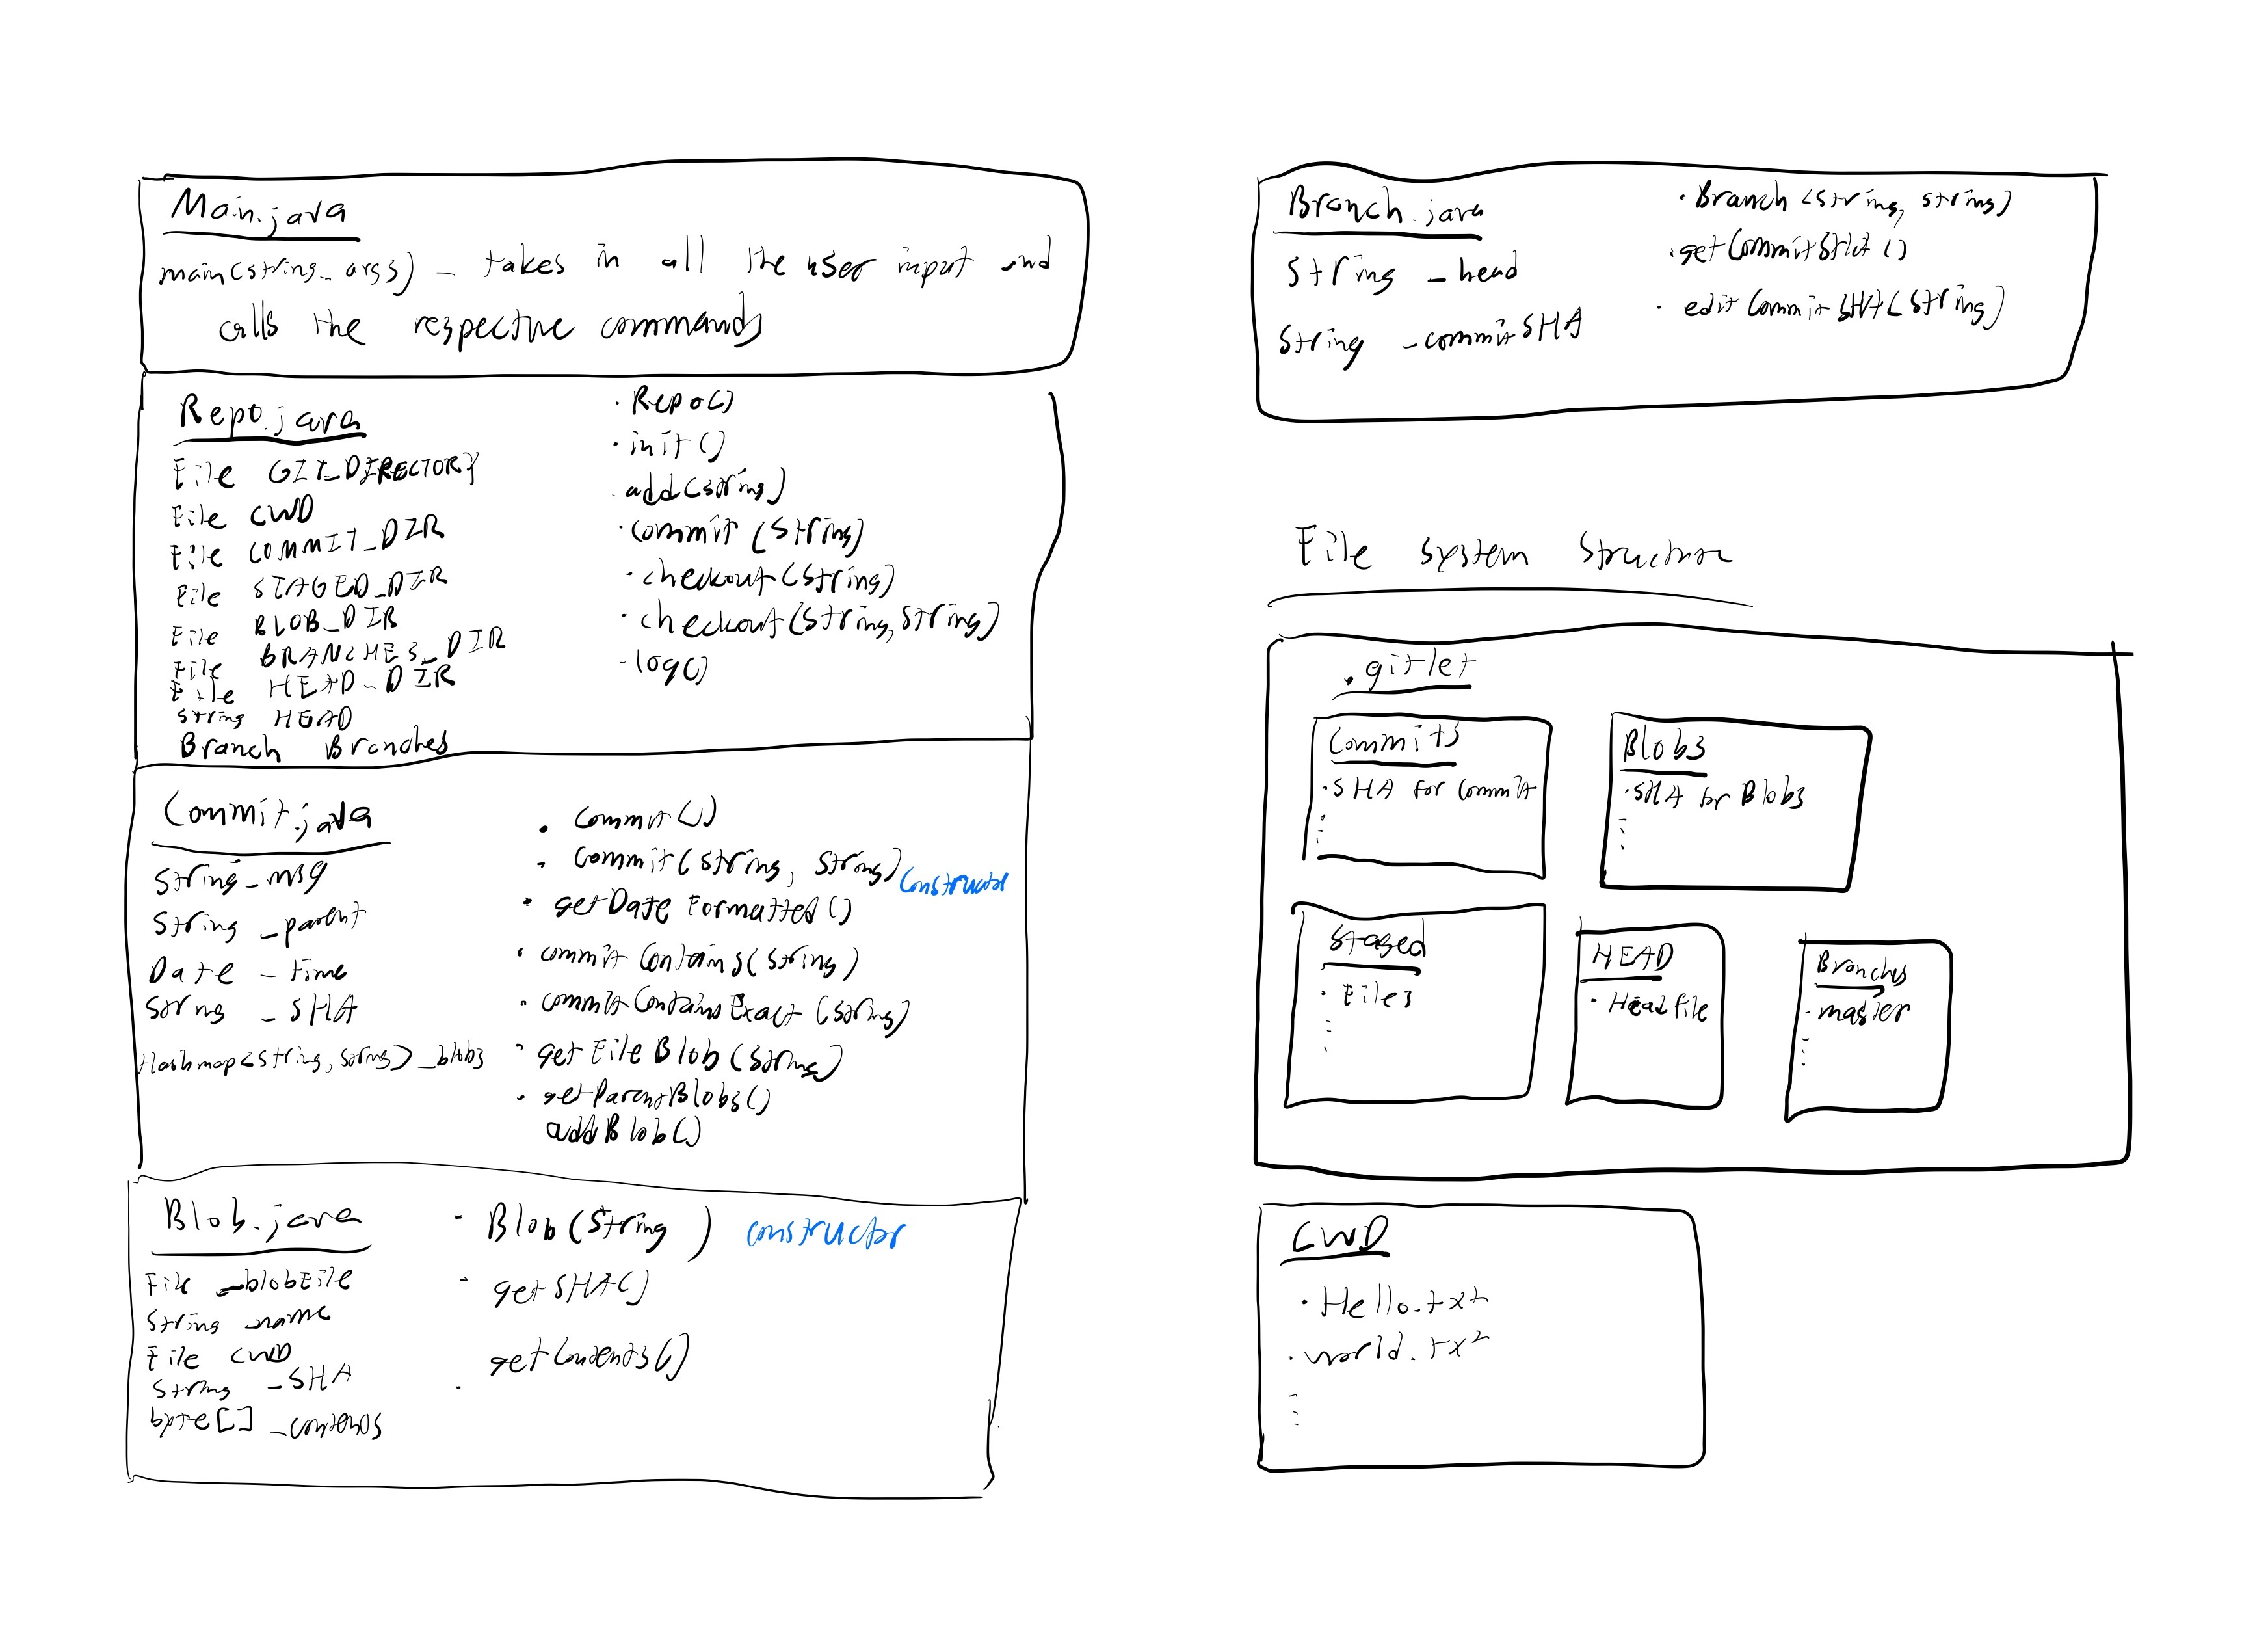 Main.java
main(string_args) - takes in all the user input and
calls the respective commands
Repo.java
File GIT_DIRECTORY
File CWD
File COMMIT_DIR
File STAGED_DIR
File BLOB_DIR
File BRANCHES_DIR
File HEAD_DIR
String HEAD
Branch Branches
· Repo()
· init()
· add(string)
· commit (String)
· checkout (String)
· checkout (String, String)
- log()
Commit.java
String _msg
String _parent
Date _time
String _SHA
Hashmap<String, String> _blobs
· Commit()
· Commit (String, String) Constructor
· getDate Formatted ()
· commit Contains (String)
· commit Contains Exact (String)
· get File Blob (String)
· getParentBlobs()
addBlob()
Blob.java
File _blobFile
String _name
File CWD
String _SHA
byte[] _contents
· Blob (String ) constructor
· getSHA()
getContents()
·
Branch.java
String _head
String _commitSHA
· Branch (String, String)
· getCommitSHA ()
· edit Commit SHA (String)
File System Structure
.gitlet
Commits
· SHA for Commit
⋮
Blobs
· SHA for Blobs
⋮
Staged
· Files
⋮
HEAD
· Head file
Branches
· master
⋮
CWD
· Hello.txt
· world.txt
⋮